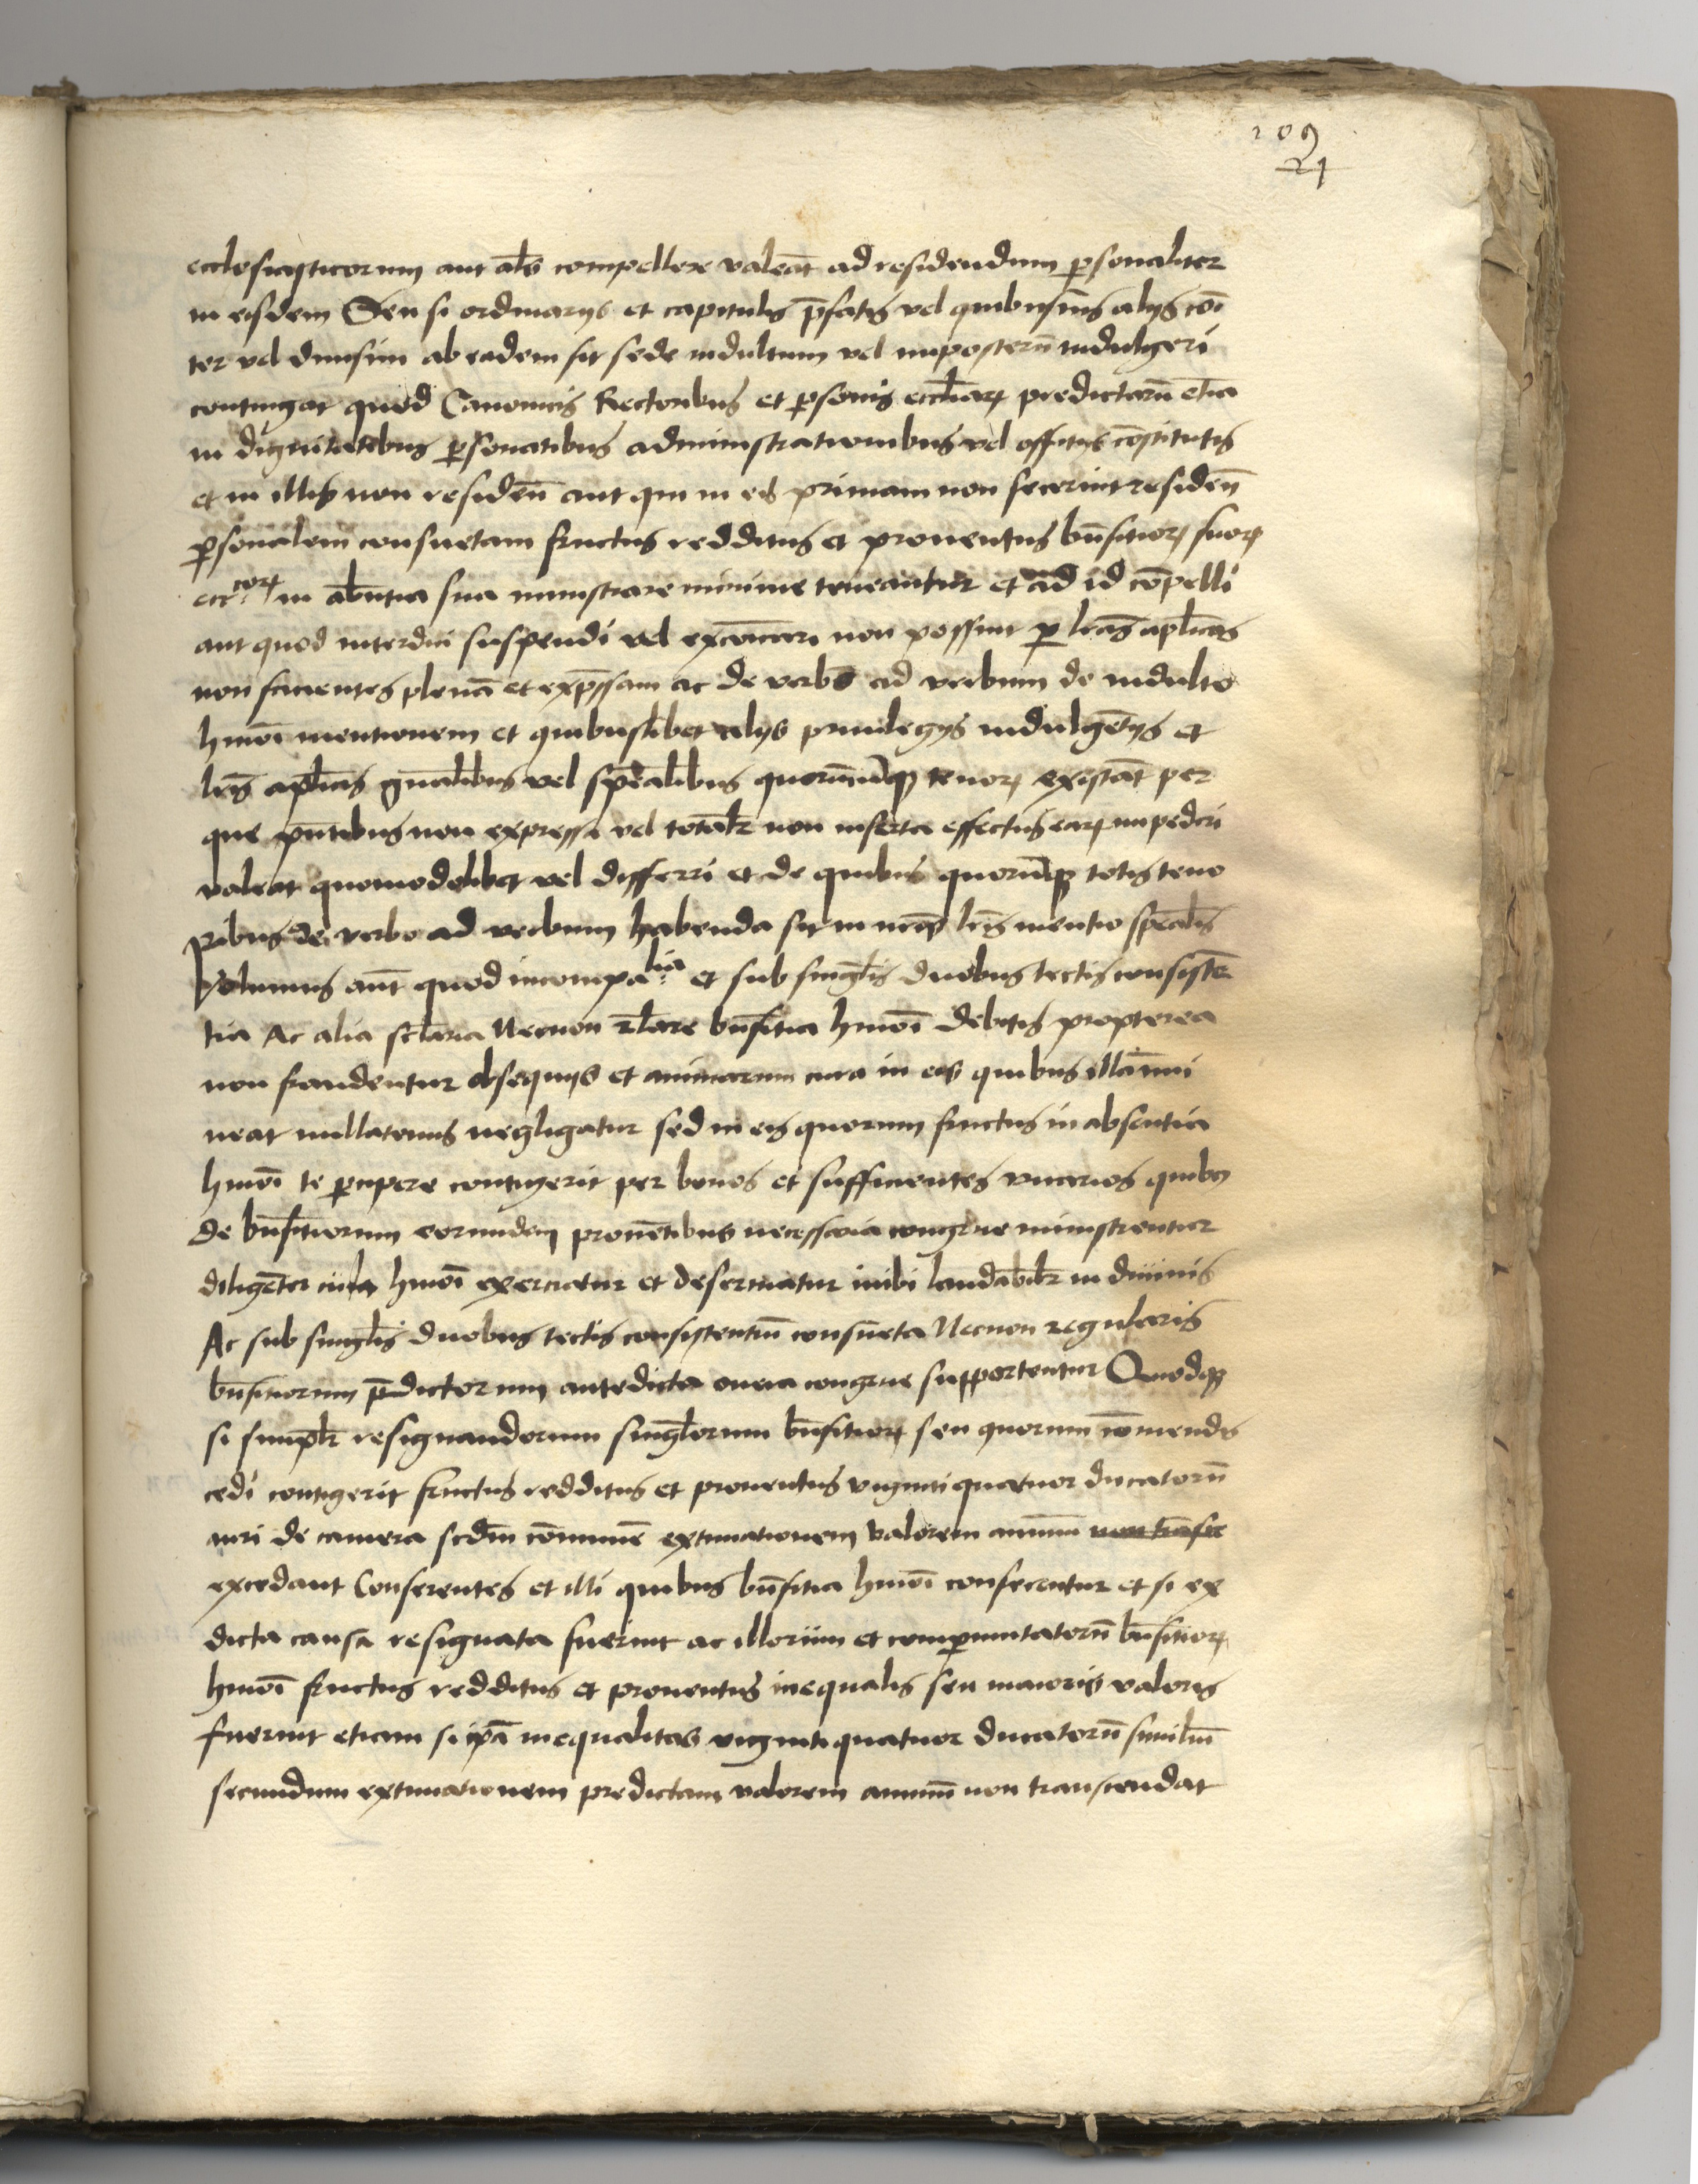 209
21
ecclesiasticorum aut al̅s compellere valea̅t ad residendum p̱sonaliter
in eisdem Seu si ordinarijs et capitulis p̅fatis vel quibusuis alijs co̅i
ter vel diuisim ab eadem sit sede indultum vel imposteru̅ indulgeri
contingat quod Canonicis Rectoribus et p̱sonis eccl̅iaꝝ predictaru̅ etia̅
in dignitatibus p̱sonatibus administrationibus vel offitijs co̅stitutis
et in illis non reside̅n aut qui in eis primam non fecerint reside̅n
p̱sonalem consuetam fructus redditus et prouentus bn̅fitioꝝ suoꝝ
ecc^coꝝ in ab̅ntia sua ministrare minime teneantur et ad id co̅pelli
aut quod interdici suspendi vel exco̅icari non possint ꝑ lr̅as ap̅licas
non facientes plena̅ et exp̅ssam ac de verbo ad verbum de indulto
hmo̅i mentionem et quibuslibet alijs priuilegijs indulge̅tijs et
lr̅is ap̅licis gn̅alibus vel spe̅alibus quorumcu̅qꝫ tenoꝝ exista̅t per
que pn̅tibus non expressa vel total̅r non inserta effectus eaꝝ impediri
valeat quomodolibet vel differri et de quibus quoru̅qꝫ totis teno
ribus de verbo ad verbum habenda sit in nr̅is lr̅is mentio spe̅alis
Volumus aut̅ quod incompa^lia et sub singl̅is duobus tectis consiste̅
tia Ac alia secl̅aria Necnon rl̅are bn̅fitia hmo̅i debitis propterea
non fraudentur obsequijs et animarum cura in eis quibus illa immi
neat nullatenus negligatur sed in eis quorum fructus in absentia
hmo̅i te p̱cipere contigerit per bonos et sufficientes vicarios quibus
de bn̅fitiorum eorundem prouentibus necessaria congrue ministrentur
dilige̅ter cura hmo̅i exerceatur et deseruiatur inibi laudabil̅r in diuinis
Ac sub singl̅is duobus tectis consistentiu̅ consueta Necnon regularis
bn̅fitiorum p̅dictorum antedicta onera congrue supportentur Quodqꝫ
si simpl̅r resignandorum singl̅orum bn̅fitioꝝ seu quorum co̅mendis
cedi contigerit fructus redditus et prouentus vigintiquatuor ducatoru̅
auri de camera scd̅m co̅mune̅ extimationem valorem annuu̅ non tra̅sce
excedant Conferentes et illi quibus bn̅fitia hmo̅i conferentur et si ex
dicta causa resignata fuerint ac illorum et comp̱mutatoru̅ bn̅fitioꝝ
hmo̅i fructus redditus et prouentus inequalis seu maioris valoris
fuerint etiam si ip̅a inequalitas vigintiquatuor ducatoru̅ similiu̅
secundum extimationem predictam valorem annuu̅ non transcendat